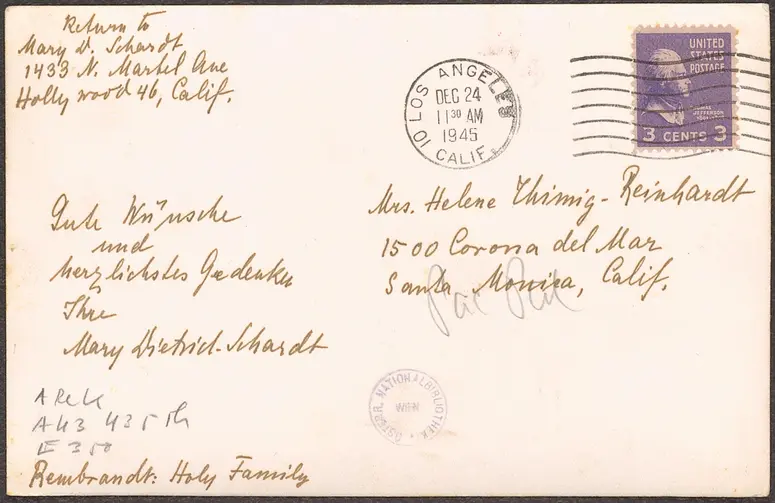 Return to
Mary D. Schardt
1433 N. Martel Ave
Hollywood 46, Calif.
LOS ANGELES
10
CALIF.
DEC 24
11 30 AM
1945
UNITED
STATES
POSTAGE
THOMAS
JEFFERSON
3 CENTS 3
Mrs. Helene Thimig-Reinhardt
1500 Corona del Mar
Santa Monica, Calif.
Pac Pal
Gute Wünsche
und
herzlichstes Gedenken
Ihre
Mary Dietrich-Schardt
A Reh
A43 435 Th
E 350
ÖSTERR. NATIONALBIBLIOTHEK
WIEN
Rembrandt: Holy Family